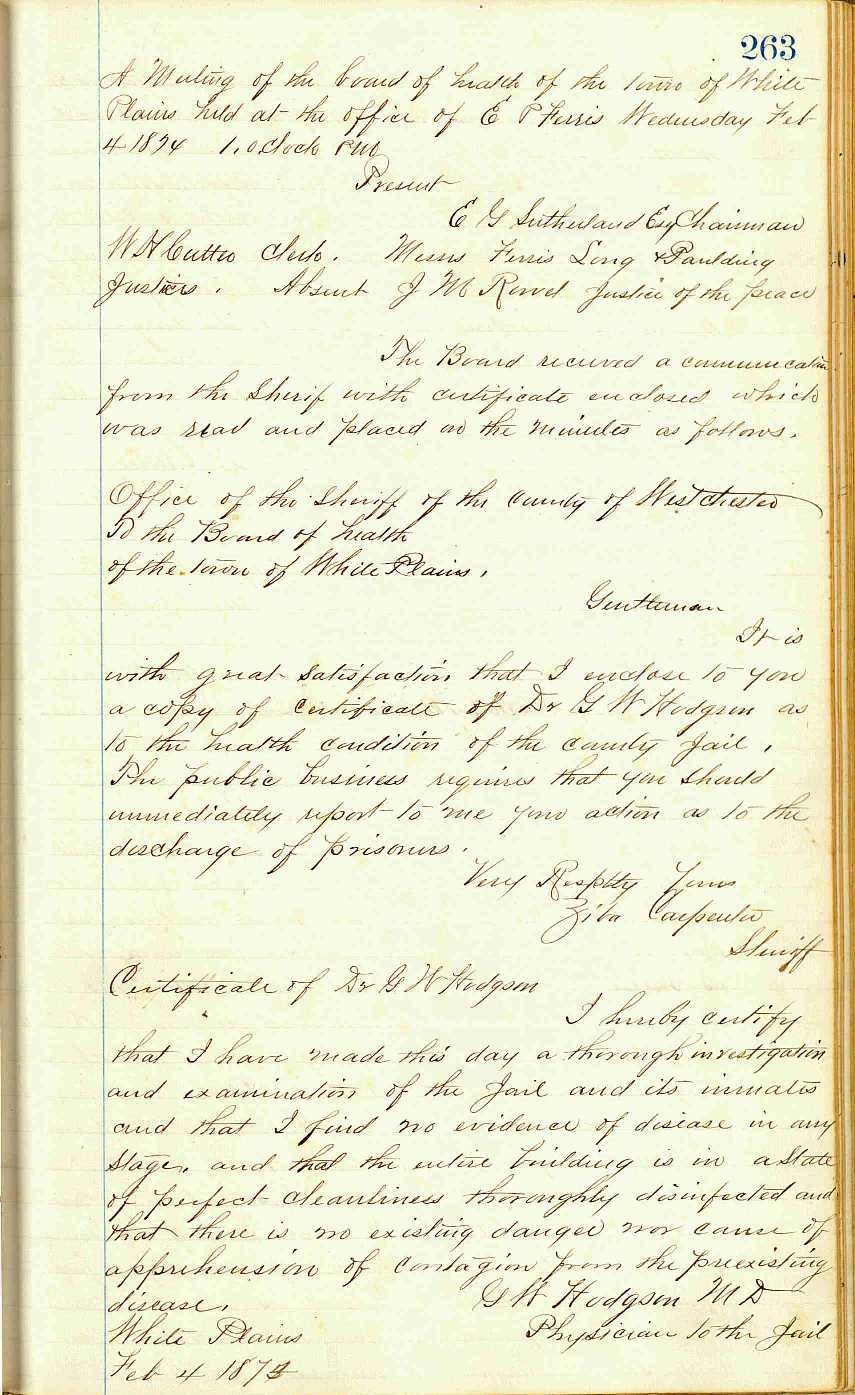 263
A Meeting of the board of health of the town of White
Plains held at the office of E P Ferris Wednesday Feb
4 1874 1, oclock PM
Present
E G Sutherland Esq Chairman
W H Cutter Clerk. Messrs Ferris Long & Paulding
Justices. Absent J M Rowel Justice of the peace
The Board received a communication
from the Sherif with certificate enclosed which
was read and placed on the minutes as follows.
Office of the Sheriff of the county of Westchester
To the Board of health
of the town of White Plains,
Gentleman
It is
with great satisfaction that I enclose to you
a copy of certificate of Dr G W Hodgson as
to the health condition of the county Jail,
The public business requires that you should
immediately report to me your action as to the
discharge of prisoners.
Very Resptty Yours
Ziba Carpenter
Sheriff
Certificate of Dr G W Hodgson
I hereby certify
that I have made this day a thorough investigation
and examination of the Jail and its inmates
and that I find no evidence of disease in any
stage, and that the entire building is in a state
of perfect cleanliness thoroughly disinfected and
that there is no existing danger nor cause of
apprehension of contagion from the preexisting
disease,
G W Hodgson M D
White Plains
Physician to the Jail
Feb 4 1874